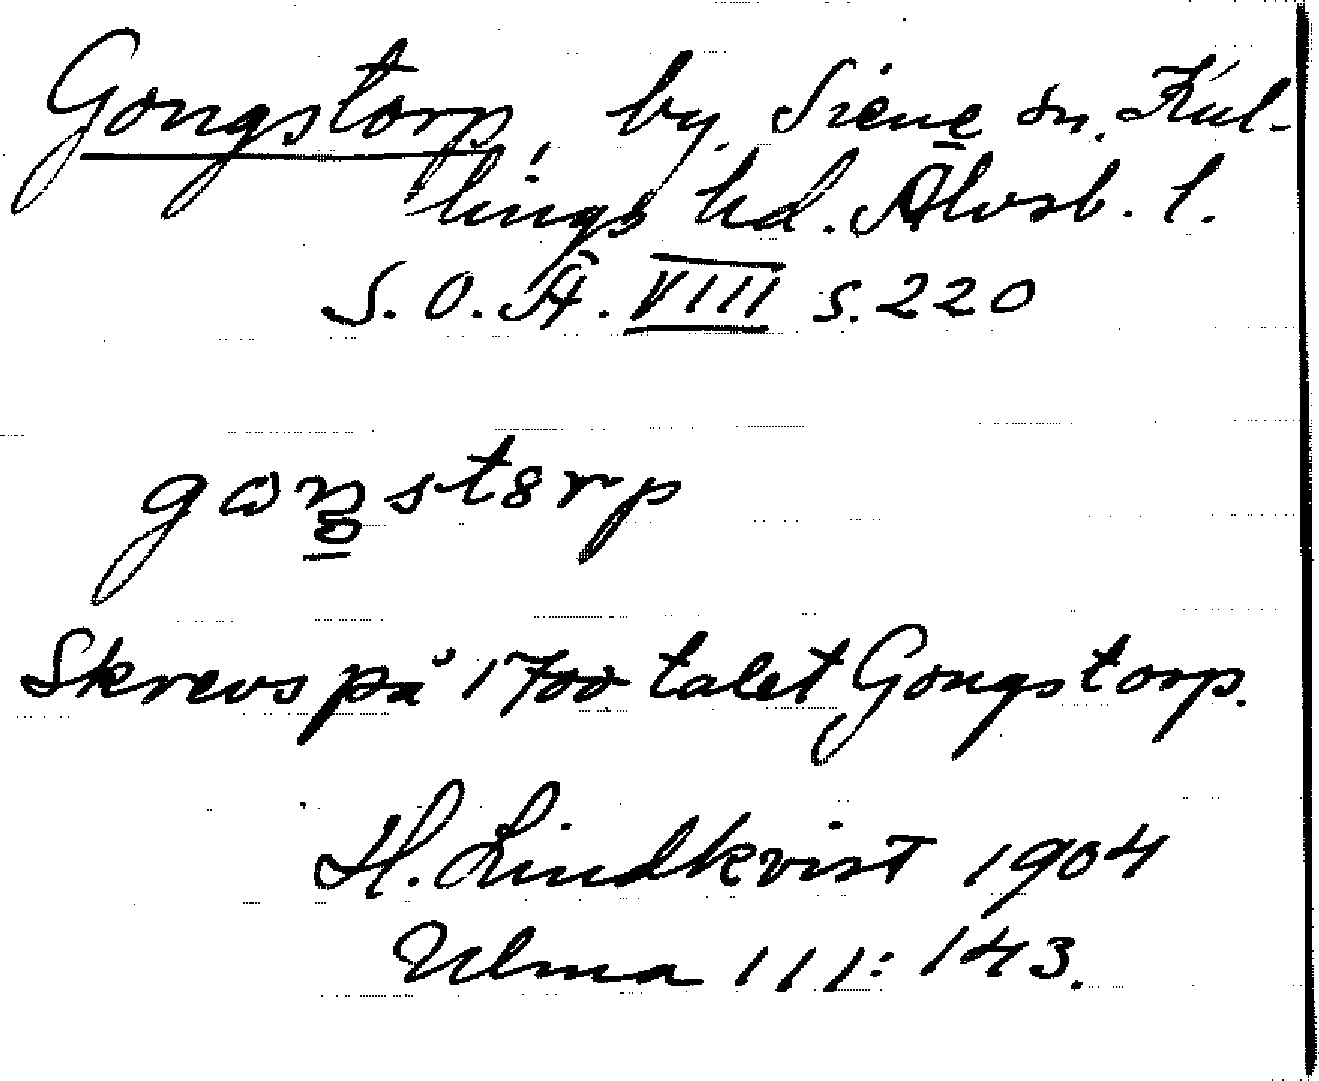 Gongstorp, by, Siene sn, Kul-
lings hd. Älvsb. l.
S. O. Ä. VIII s. 220
Skrevs på 1700 talet Gongstorp.
H. Lindkvist 1904
Ulma 111: 143.